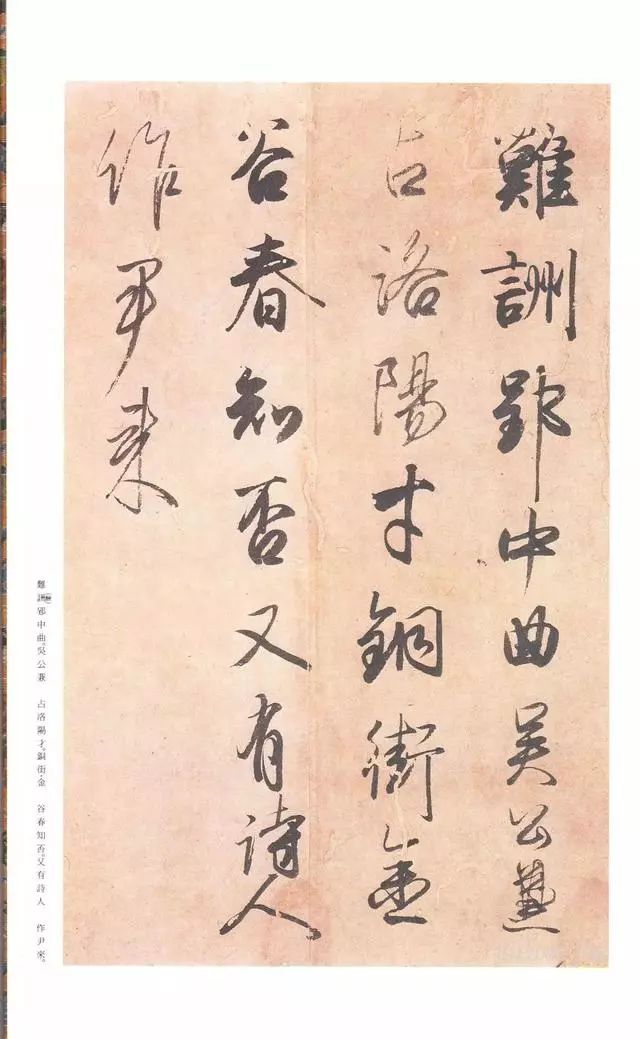 難詶郢中曲吳公兼
占洛陽才銅街金
谷春知否又有詩人
作尹來
難詶郢中曲。吳公兼　占洛陽才。銅街金　谷春知否。又有詩人　作尹來。